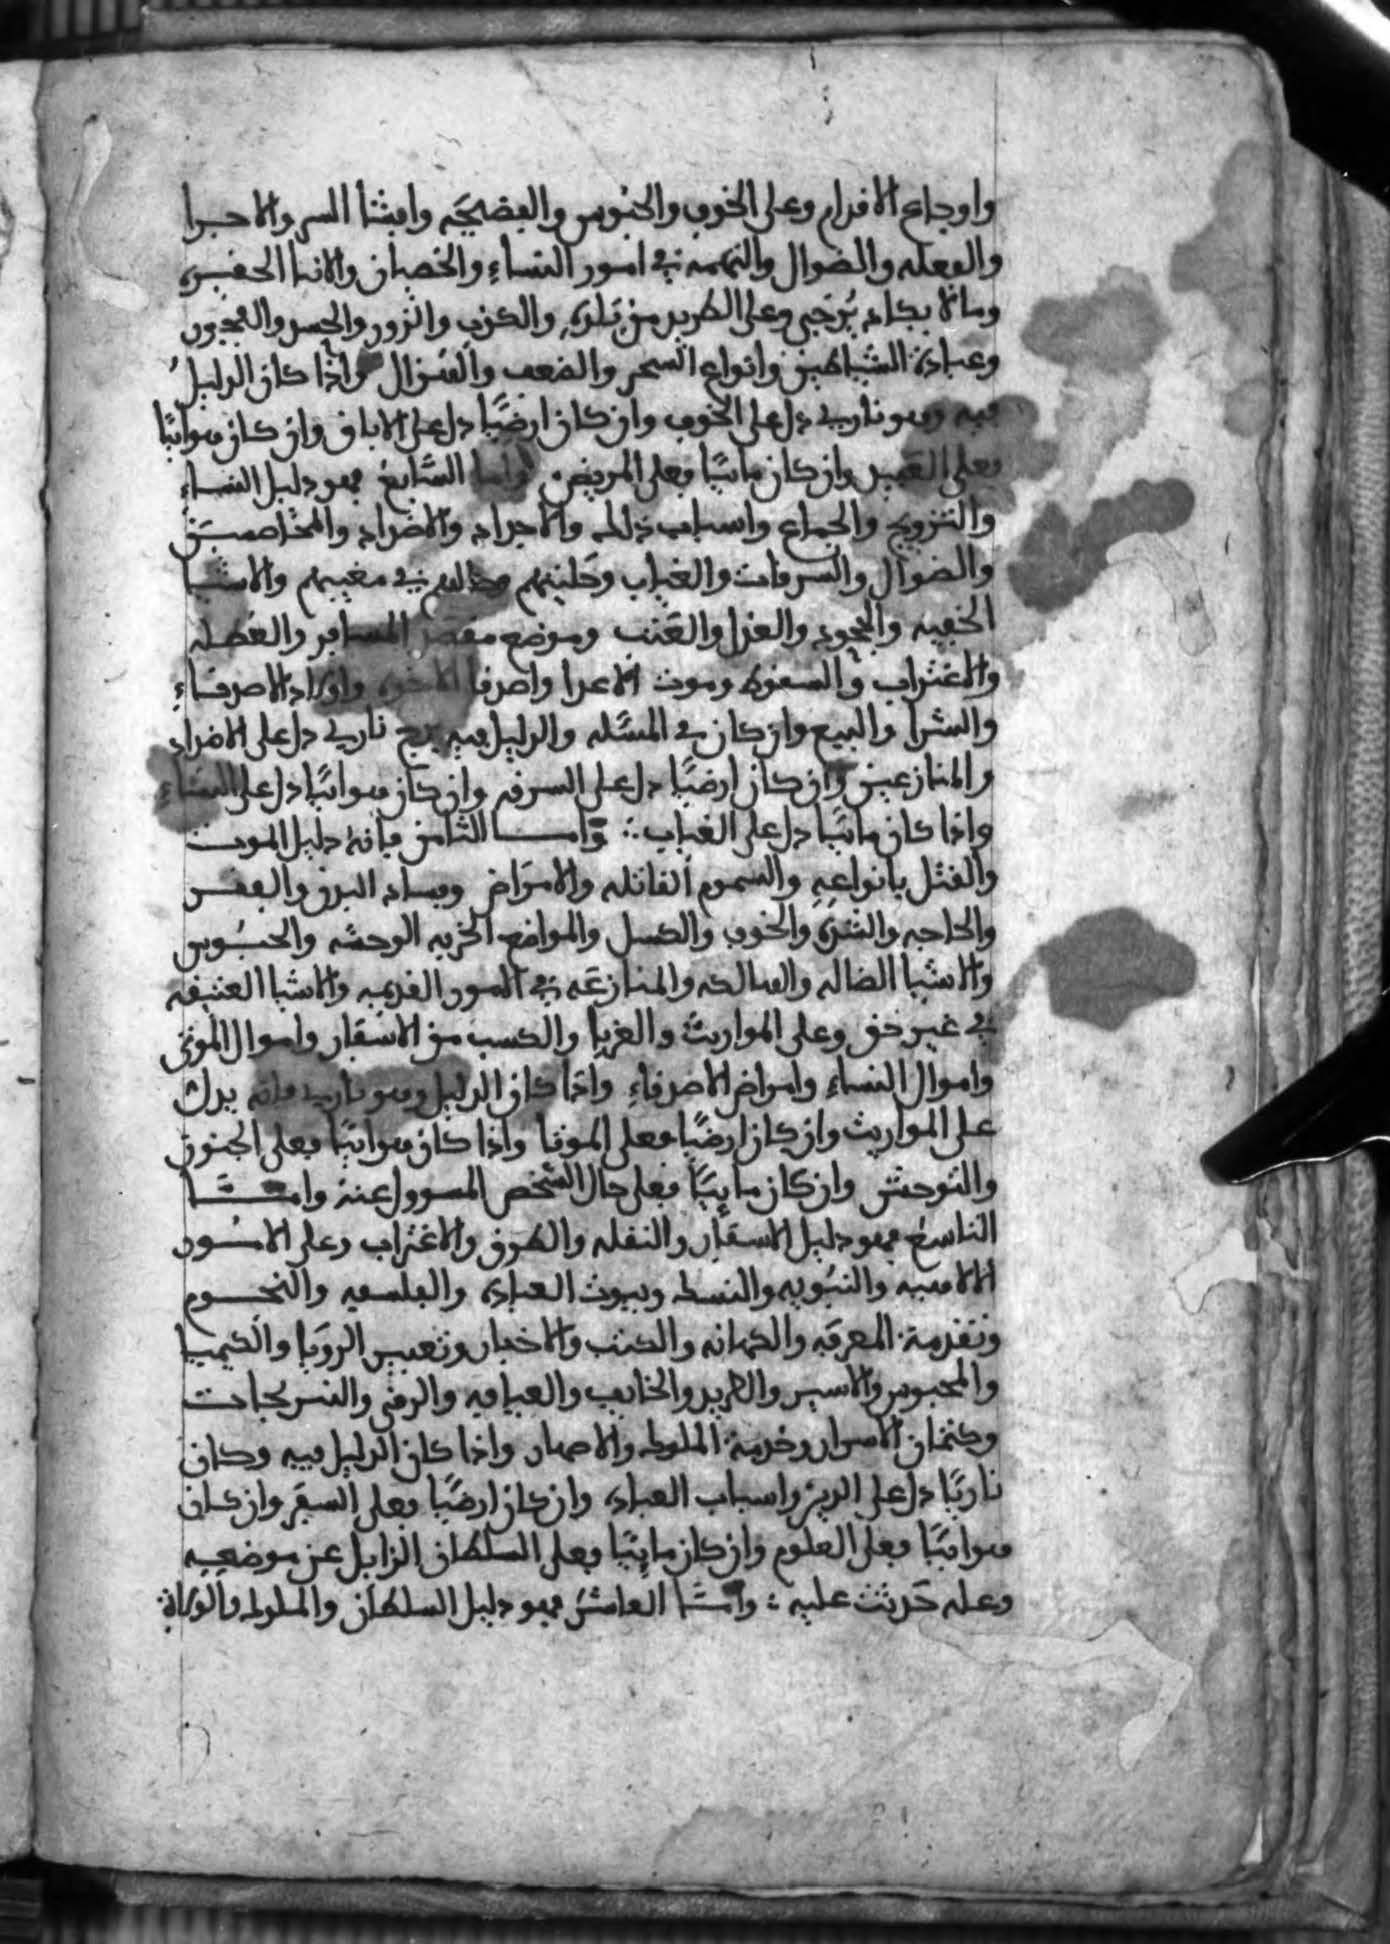 واوجاع الاقدام وعلى الخوف والحبوس والفضيحه وافشا السر والاجرا
والفعله والضوال والتهمه في امور النساء والخصيان والانبا الخفيه
وما لا يكاد يُرتجى وعلى الطريد من بلده والكذب والزور والحسد والفجور
وعبادة الشياطين وانواع السحر والضعف والسُوال واذا كان الدليلُ
فيه وهو ناريٌ دل على الخوف وان كان ارضيًا دل على الاباق وان كان هوائيًا
فعلى وان كان مائيًا فعلى المريض واما السَّابعُ فهو دليل النساء
والتزويج والجماع واسباب ذلك والاجداد والاضداد والمخاصمين
والضوال والسرقات والغياب وحليتهم وحالهم في مغيبهم والاشيا
الخفيه والجحود والغزل والعَتب وموضع مقصَد المسافر والعُطله
والاغتراب والسفرة وموت الاعدا واصدقا الاخوة واولاد الاصدقاءِ
والشرا والبيع وان كان في المسَله والدليل فيه برج ناري دل على الاضداد
والمنازعين وان كان ارضيًا دل على السرقه وان كان هوائيًا دل على النساءِ
واذا كان مائيًا دل على الغياب ∴ وَامــا الثامن فانهُ دليل الموت
والقتل بانواعهِ والسموم القاتله والامرَاض وفساد البدن والفقر
والحاجه والشدّه والخوف والكسل والمواضع الخربه الوحشه والحبُوس
والاشيا الضاله والهالكه والمنازعَه في الامور القديمه والاشيا العتيقه
في غير حق وعلى المواريث والغربا والكسب من الاسفار واموال الموتى
واموال النساءِ وامراض الاصدقاءِ واذا كان الدليل وهو ناريٌ فانه يدل
على المواريث وان كان ارضيًا فعلى الموتا واذا كان هوائيًا فعلى الجنون
والتوحش وان كان مائيًا فعلى حال الشخص المسوول عنهُ وامــا
التاسعُ فهو دليل الاسفار والنقله والطرق والاغتراب وعلى الامُور
الالاهيه والنبُويه والنسك وبيوت العباده والفلسفه والنجــوم
وتقدمة المعرفه والكهانه والكتب والاخبار وتعبير الرويَا والكيميا
والمحبوس والاسير والطريد والخايب والعيافه والرقى والنيرنجات
وكتمان الاسرار وخدمة الملوك والاصهار واذا كان الدليل فيه وكان
ناريًا دل على الدين واسباب العباده وان كان ارضيًا فعلى السفر وان كان
هوائيًا فعلى العلوم وان كان مائيًا فعلى السلطان الزايل عن موضعِهِ
وعله حَدثت عليه ∴ وامَّــا العاشرُ فهو دليل السلطان والملوك والولاة